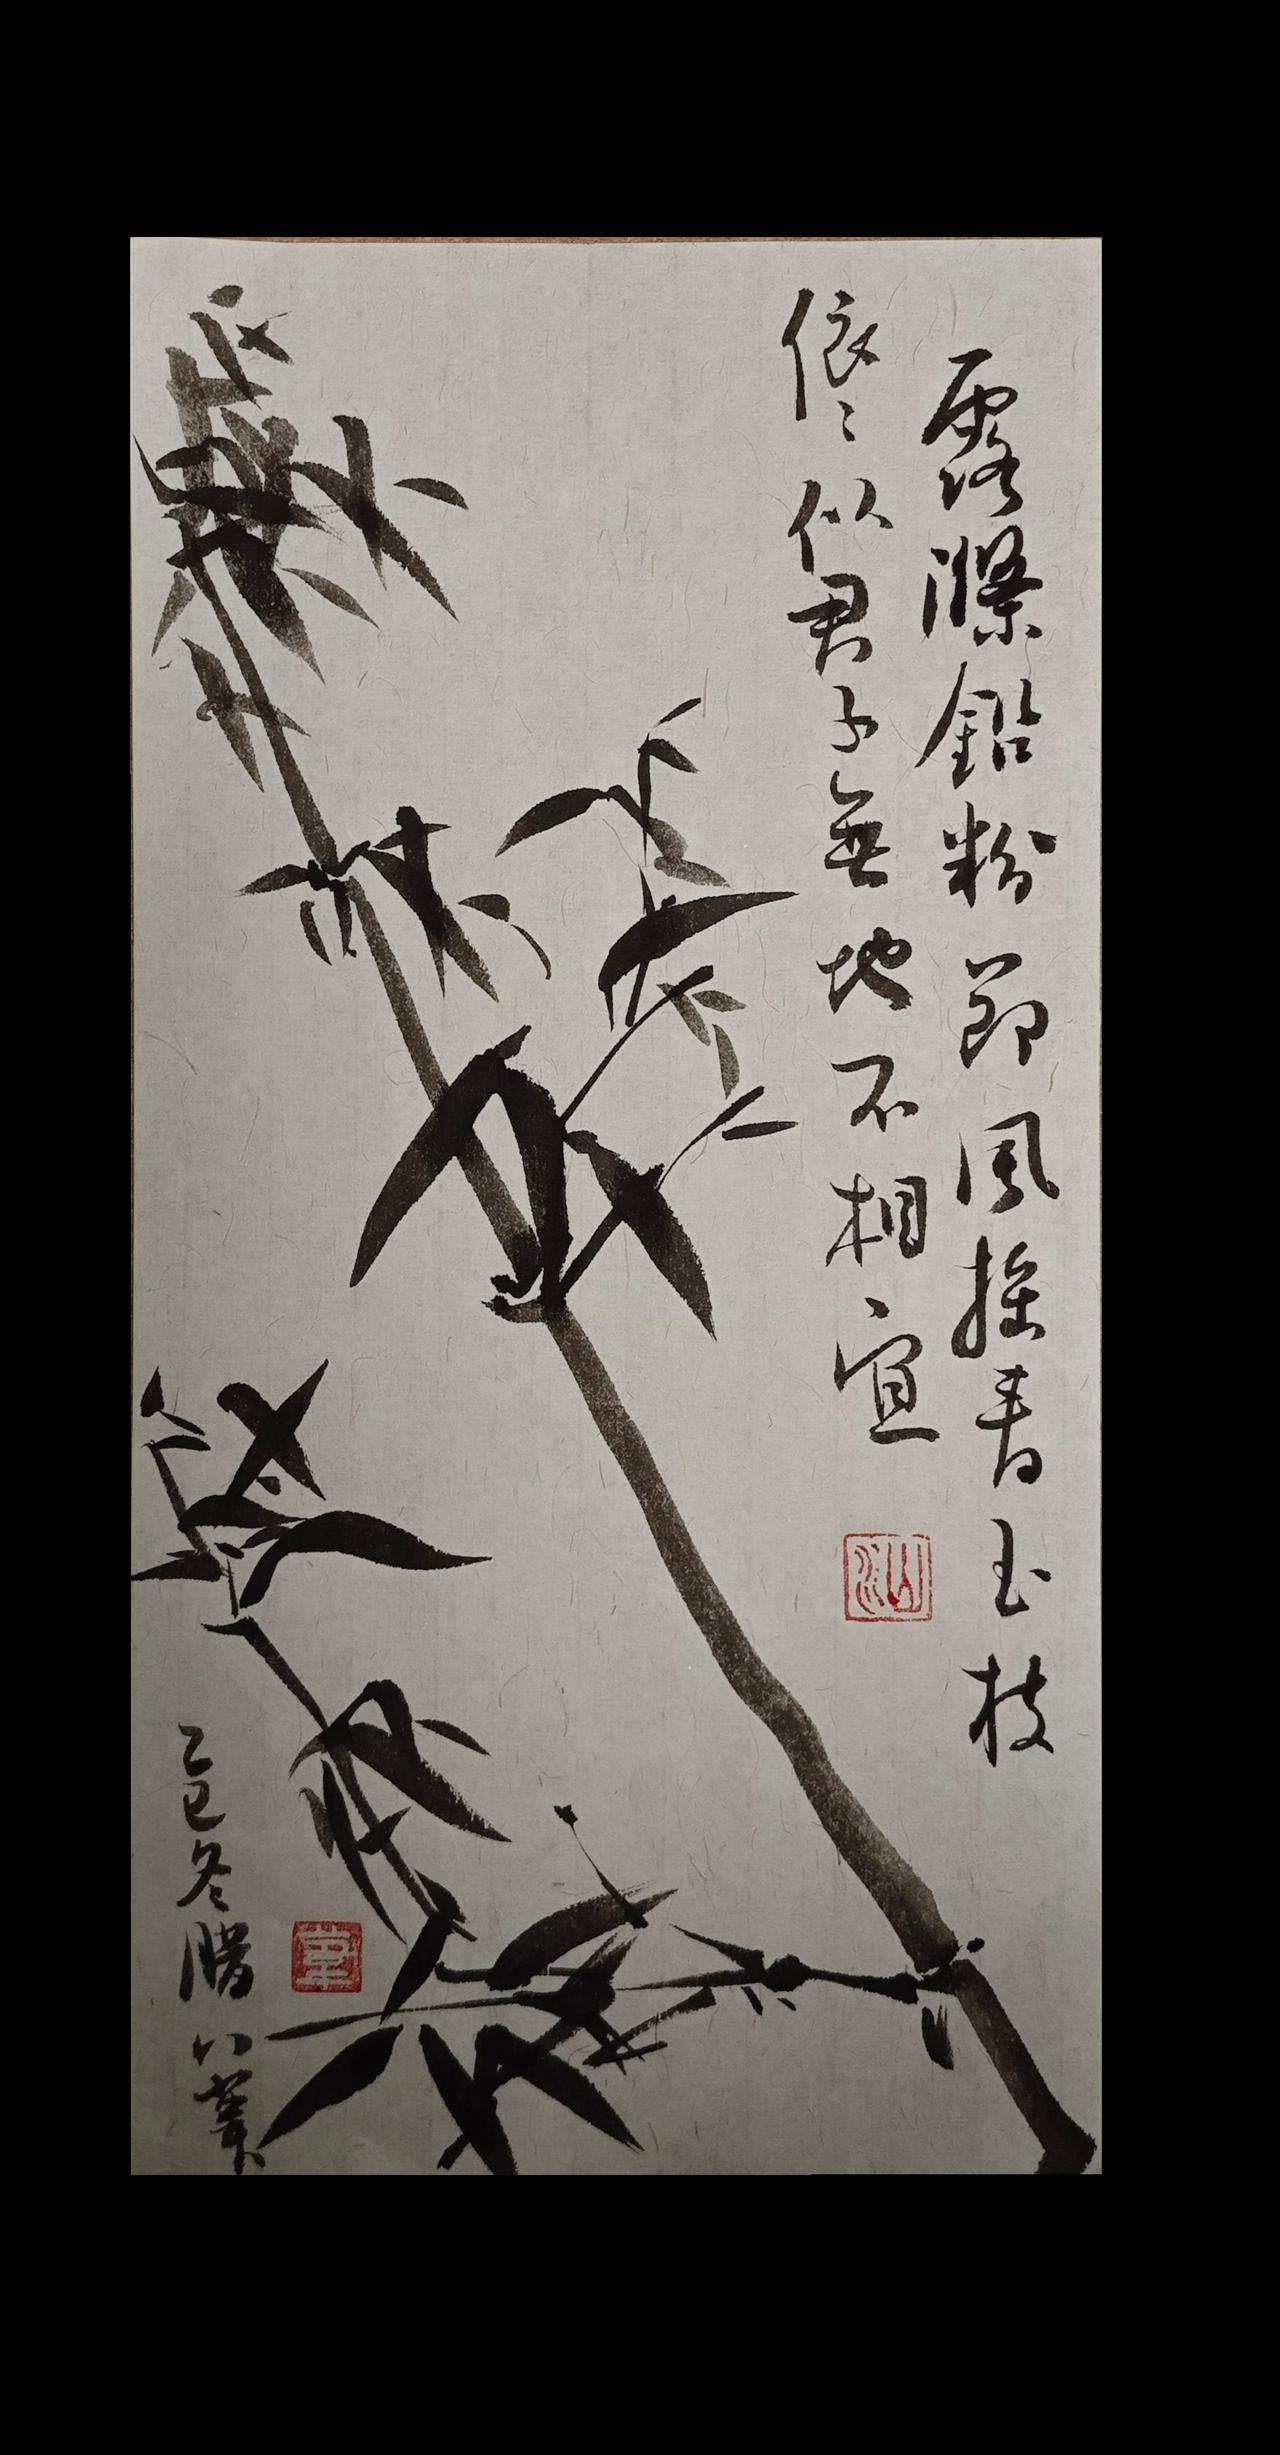 露滌鉛粉節風搖青玉枝
依〻似君子無地不相宜
乙巳冬臘八葦